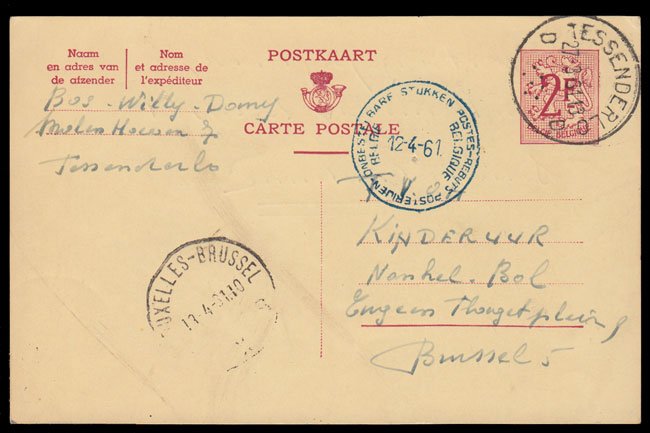 Naam
en adres van
de afzender
Nom
et adresse de
l'expéditeur
POSTKAART
CARTE POSTALE
2F
TESSENDERLO
D D
BELGIE
Bos - Willy - Domy
Molen Hoeven 7
Tessenderlo
ONBESTELBARE STUKKEN POSTES-REBUTS POSTERIJEN
BELGIE BELGIQUE
12-4-61
T.V.
KINDERUUR
Nonkel-Bol
Eugeen Flageyplein
Brussel 5
BRUXELLES-BRUSSEL
13-4-61